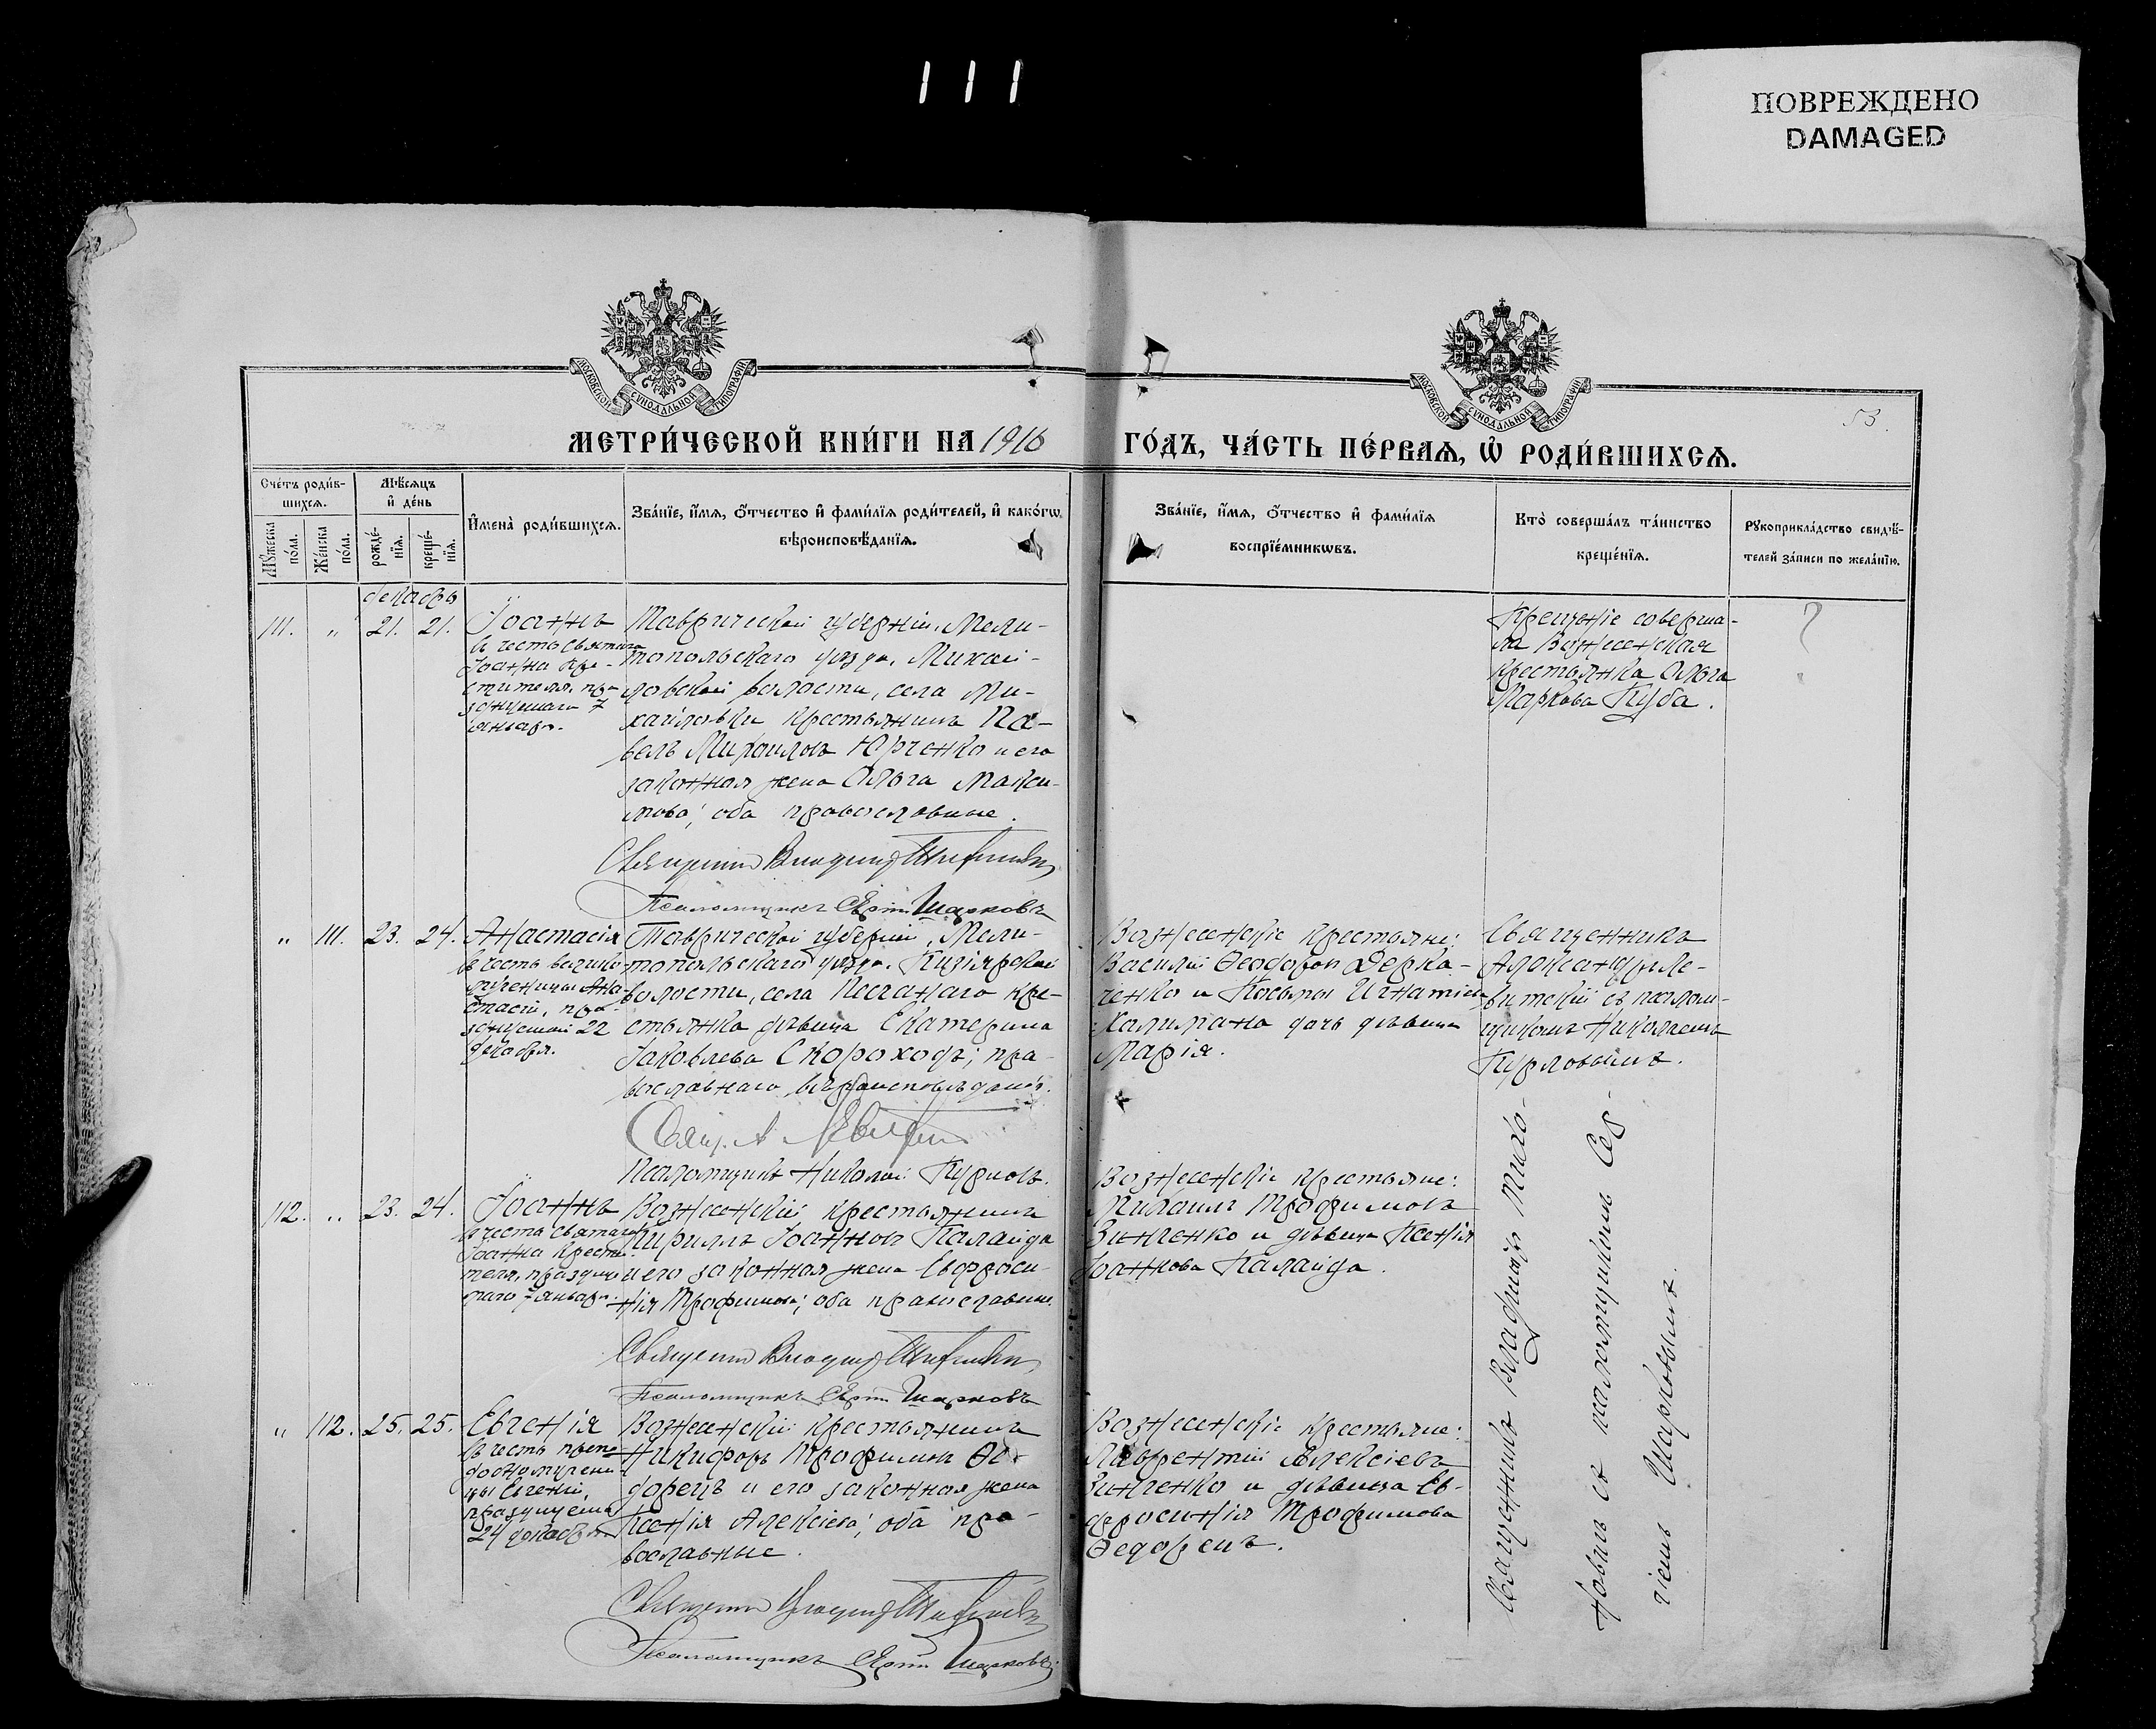 111
ПОВРЕЖДЕНО
DAMAGED
МОСКОВСКОЙ СѴНОДАЛЬНОЙ ТИПОГРАФІИ
МОСКОВСКОЙ СѴНОДАЛЬНОЙ ТИПОГРАФІИ
53.
МЕТРИ́ЧЕСКОЙ КНИ́ГИ НА 1916
ГО́ДЪ, ЧА́СТЬ ПЕ́РВАѦ, Ѽ РОДИ́ВШИХСѦ.
Сче́тъ роди́в-
шихсѧ.
Мꙋ́жеска
по́ла.
Же́нска
по́ла.
Мѣ́сѧцъ
и҆ де́нь
рожде́-
нїѧ.
креще́-
нїѧ.
И҆мена̀ роди́вшихсѧ.
Зва́нїе, и҆́мѧ, ѻ҆́тчество и҆ фами́лїѧ роди́телей, и҆ како́гѡ
вѣроисповѣ́данїѧ.
Зва́нїе, и҆́мѧ, ѻ҆́тчество и҆ фами́лїѧ
воспрїе́мникѡвъ.
Кто̀ соверша́лъ та́инство
креще́нїѧ.
Рꙋкоприкла́дство свидѣ́-
телей за́писи по жела́нїю.
декабрь
111. " 21. 21.
Іоаннъ
въ честь Святаго
Іоанна Кре-
стителя, пра-
зднуемаго 7
января.
Таврической губерніи, Мели-
топольскаго уезда, Михай-
ловской волости, села Ми-
хайловки крестьянинъ Па-
велъ Михаиловъ Юрченко и его
законная жена Ольга Макси-
мова; оба православные.
Священникъ Владимір
Псаломщикъ Сергій Шарковъ
Крещеніе соверши-
ла Вознесенская
крестьянка Ольга
Маркова Куба.
?
" 111. 23. 24.
Анастасія
въ честь велико-
мученицы Ана-
стасіи, пра-
зднуемой 22
декабря.
Таврической губерніи, Мели-
топольскаго уезда, Кизіярской
волости, села Песчанаго кре-
стьянка девица Екатерина
Іаковлева Скороходъ; пра-
вославнаго вероисповеданія.
Свящ. А Левитскій
Псаломщикъ Николай Курловъ.
Вознесенскіе крестьяне:
Василій Ѳеодоровъ Дерка-
ченко и Косьмы Игнатіева
Халимана дочь девица
Марія.
Священникъ
Александръ Ле-
витскій съ псалом-
щикомъ Николаемъ
Курловымъ.
112. " 23. 24.
Іоаннъ
въ честь Святаго
Іоанна Крести-
теля, праздну-
емаго 7 января.
Вознесенскій крестьянинъ
Кириллъ Іоанновъ Паланда
и его законная жена Евфроси-
нія Трофимова; оба православные.
Священникъ Владимір
Псаломщикъ Сергій Шарковъ
Вознесенскіе крестьяне:
Михаилъ Трофимовъ
Зинченко и девица Ксенія
Іоаннова Паланда.
Священникъ Владиміръ Тихо-
новъ съ псаломщикомъ Сер-
гіемъ Шарковымъ.
" 112. 25. 25.
Евгенія
въ честь препо-
добномучени-
цы Евгеніи,
празднуемой
24 декабря.
Вознесенскій крестьянинъ
Никифоръ Трофимовъ Ѳе-
дорецъ и его законная жена
Ксенія Алексіева; оба пра-
вославные.
Священникъ Владимір
Псаломщикъ Сергій Шарковъ
Вознесенскіе крестьяне:
Лаврентій Алексіевъ
Зинченко и девица Ев-
фросинія Трофимова
Ѳедорецъ.